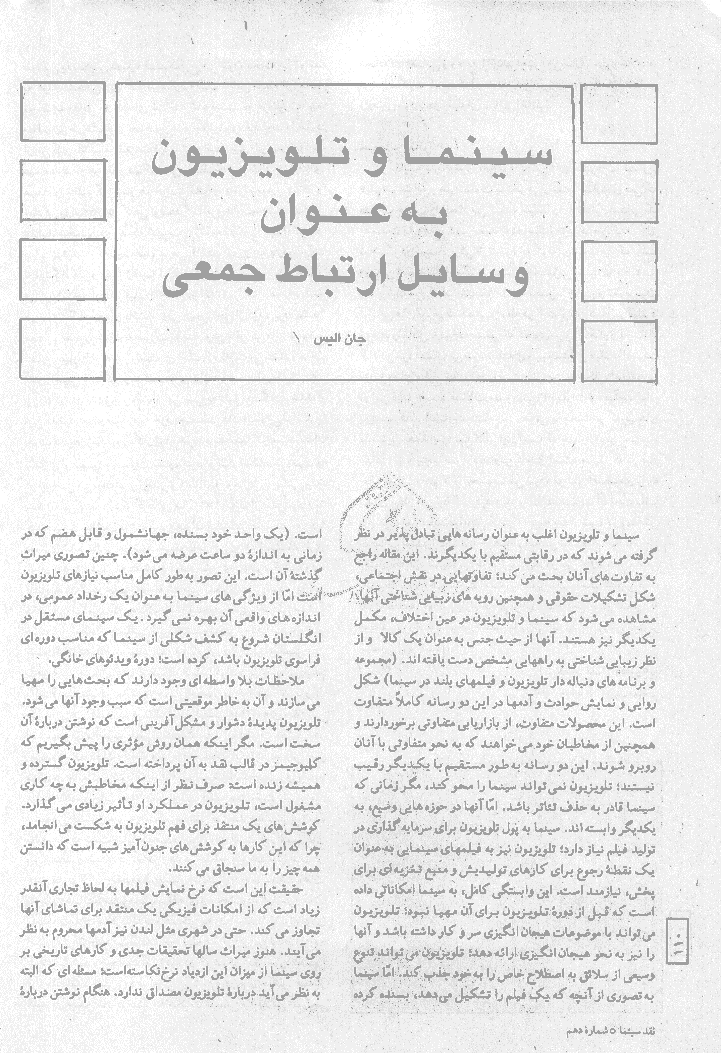 سینما و تلویزیون
به عنوان
وسایل ارتباط جمعی
جان الیس \
سینما و تلویزیون اغلب به عنوان رسانه هایی تبادل پذیر در نظر
گرفته می شوند که در رقابتی مستقیم با یکدیگرند. این مقاله راجع
به تفاوت های آنان بحث می کند؛ تفاوتهایی در نقش اجتماعی،
شکل تشکیلات حقوقی و همچنین رویه های زیبایی شناختی آنها.
مشاهده می شود که سینما و تلویزیون در عین اختلاف، مکمل
یکدیگر نیز هستند. آنها از حیث جنس به عنوان یک کالا و از
نظر زیبایی شناختی به راههایی مشخص دست یافته اند. (مجموعه
و برنامه های دنباله دار تلویزیون و فیلمهای بلند در سینما) شکل
روایی و نمایش حوادث و آدمها در این دو رسانه کاملاً متفاوت
است. این محصولات متفاوت، از بازاریابی متفاوتی برخوردارند و
همچنین از مخاطبان خود می خواهند که به نحو متفاوتی با آنان
روبرو شوند. این دو رسانه به طور مستقیم با یکدیگر رقیب
نیستند؛ تلویزیون نمی تواند سینما را محو کند، مگر زمانی که
سینما قادر به حذف تئاتر باشد. امّا آنها در حوزه هایی وضیع، به
یکدیگر وابسته اند. سینما به پول تلویزیون برای سرمایه گذاری در
تولید فیلم نیاز دارد؛ تلویزیون نیز به فیلمهای سینمایی به عنوان
یک نقطهٔ رجوع برای کارهای تولیدیش و منبع تغذیه ای برای
پخش، نیازمند است. این وابستگی کامل، به سینما امکاناتی داده
است که قبل از دورهٔ تلویزیون برای آن مهیا نبود؛ تلویزیون
می تواند با موضوعات هیجان انگیزی سر و کار داشته باشد و آنها
را نیز به نحو هیجان انگیزی ارائه دهد؛ تلویزیون می تواند تنوع
وسیعی از سلائق به اصطلاح خاص را به خود جلب کند. امّا سینما
به تصوری از آنچه که یک فیلم را تشکیل می دهد، بسنده کرده
است. (یک واحد خود بسنده، جهانشمول و قابل هضم که در
زمانی به اندازهٔ دو ساعت عرضه می شود). چنین تصوری میراث
گذشتهٔ آن است. این تصور به طور کامل مناسب نیازهای تلویزیون
است امّا از ویژگی های سینما به عنوان یک رخداد عمومی، در
اندازه های واقعی آن بهره نمی گیرد. یک سینمای مستقل در
انگلستان شروع به کشف شکلی از سینما که مناسب دوره ای
فراسوی تلویزیون باشد، کرده است؛ دورهٔ ویدئوهای خانگی.
ملاحظات بلا واسطه ای وجود دارند که بحث هایی را مهیا
می سازند و آن به خاطر موقعیتی است که سبب وجود آنها می شود.
تلویزیون پدیدهٔ دشوار و مشکل آفرینی است که نوشتن دربارهٔ آن
سخت است. مگر اینکه همان روش مؤثری را پیش بگیریم که
کلیوجیمز در قالب نقد به آن پرداخته است. تلویزیون گسترده و
همیشه زنده است: صرف نظر از اینکه مخاطبش به چه کاری
مشغول است، تلویزیون در عملکرد او تأثیر زیادی می گذارد.
کوشش های یک منتقد برای فهم تلویزیون به شکست می انجامد،
چرا که این کارها به کوشش های جنون آمیز شبیه است که دانستن
همه چیز را به ما سنجاق می کنند.
حقیقت این است که نرخ نمایش فیلمها به لحاظ تجاری آنقدر
زیاد است که از امکانات فیزیکی یک منتقد برای تماشای آنها
تجاوز می کند. حتی در شهری مثل لندن نیز آدمها محروم به نظر
می آیند. هنوز میراث سالها تحقیقات جدی و کارهای تاریخی بر
روی سینما از میزان این ازدیاد نرخ نکاسته است؛ مسئله ای که البته
به نظر می آید دربارهٔ تلویزیون مصداق ندارد. هنگام نوشتن دربارهٔ
۱۱۰
نقد سینما ○ شمارهٔ دهم